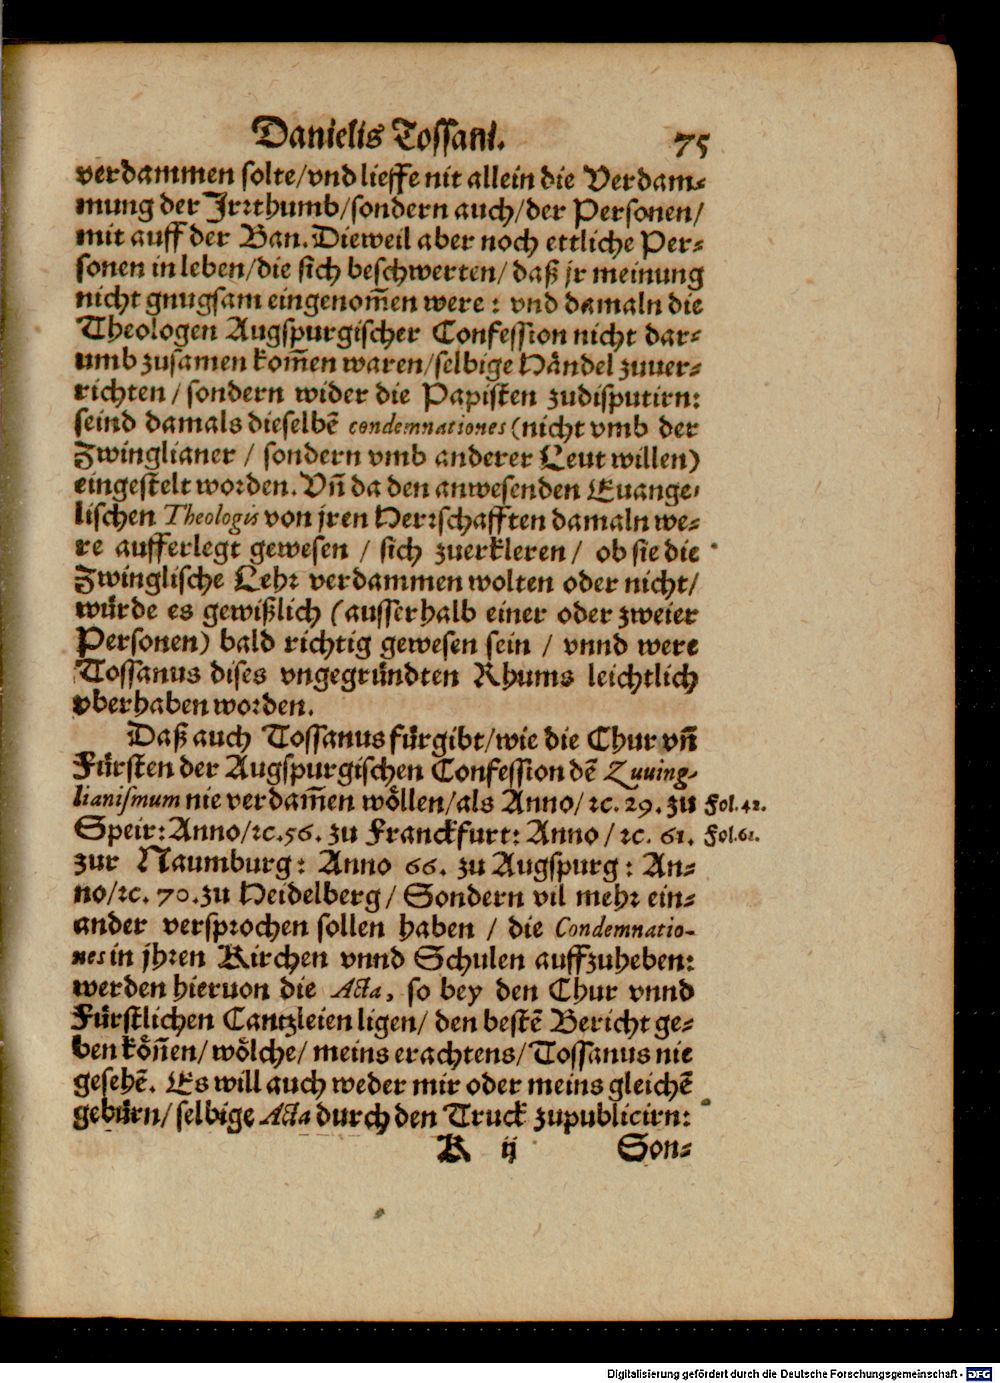 Danielis Tossani. 75
verdammen solte/vnd lieffe nit allein die Verdam⸗
mung der Irꝛthumb/sondern auch/der Personen/
mit auff der Ban. Dieweil aber noch ettliche Per⸗
sonen in leben/die sich beschwerten/daß jr meinung
nicht gnugsam eingenom̃en were: vnd damaln die
Theologen Augspurgischer Confession nicht dar⸗
umb zusamen kom̃en waren/selbige Händel zuuer⸗
richten/sondern wider die Papisten zudisputirn:
seind damals dieselbẽ condemnationes (nicht vmb der
Zwinglianer / sondern vmb anderer Leut willen)
eingestelt worden. Vñ da den anwesenden Euange⸗
lischen Theologis von jren Herꝛschafften damaln we⸗
re aufferlegt gewesen / sich zuerkleren / ob sie die
Zwinglische Lehꝛ verdammen wolten oder nicht/
würde es gewißlich (ausserhalb einer oder zweier
Personen) bald richtig gewesen sein / vnnd were
Tossanus dises vngegründten Rhums leichtlich
vberhaben woꝛden.
Daß auch Tossanus fürgibt/wie die Chur vñ
Fürsten der Augspurgischen Confession dẽ Zuuing-
lianismum nie verdam̃en wöllen/als Anno/ꝛc. 29. zu Fol. 42.
Speir: Anno/ꝛc. 56. zu Franckfurt: Anno / ꝛc. 61. Fol. 61.
zur Naumburg: Anno 66. zu Augspurg: An⸗
no/ꝛc. 70. zu Heidelberg/ Sondern vil mehꝛ ein⸗
ander verspꝛochen sollen haben / die Condemnatio-
nes in jhꝛen Kirchen vnnd Schulen auffzuheben:
werden hieruon die Acta, so bey den Chur vnnd
Fürstlichen Cantzleien ligen/ den bestẽ Bericht ge⸗
ben köñen/wölche/meins erachtens/Tossanus nie
gesehẽ. Es will auch weder mir oder meins gleichẽ
gebürn/selbige Acta durch den Truck zupublicirn:
K ij Son⸗
Digitalisierung gefördert durch die Deutsche Forschungsgemeinschaft - DFG